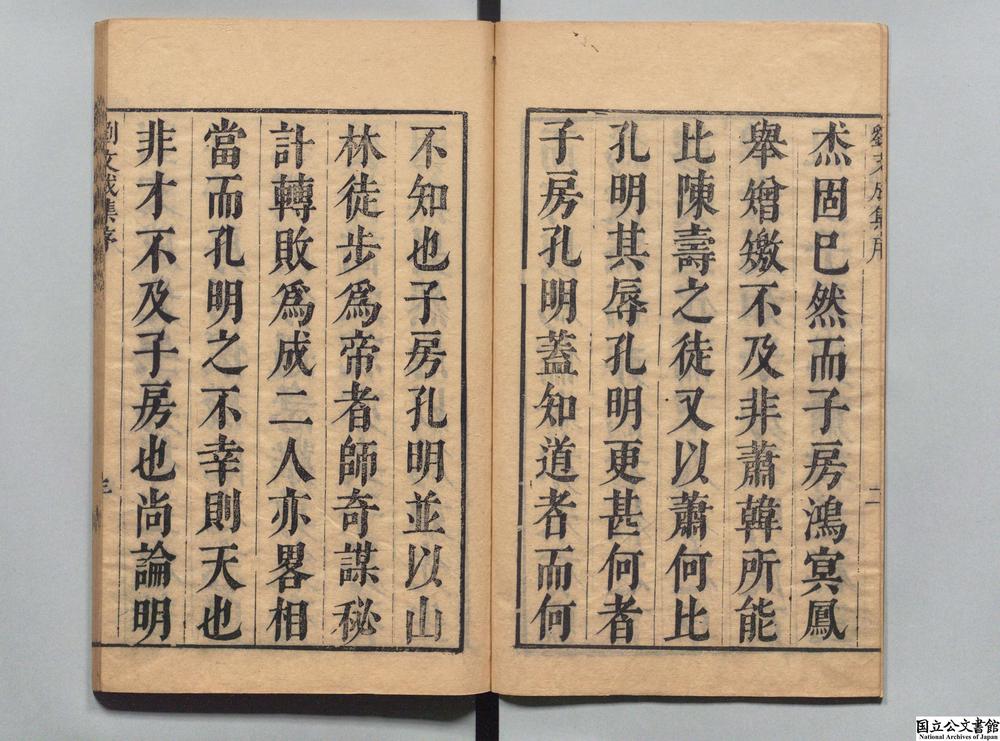 劉文成集序
二
烝固已然而子房鴻冥鳳
舉矰繳不及非蕭韓所能
比陳壽之徒又以蕭何比
孔明其辱孔明更甚何者
子房孔明蓋知道者而何
不知也子房孔明並以山
林徒步爲帝者師奇謀秘
計轉敗爲成二人亦畧相
當而孔明之不幸則天也
非才不及子房也尚論明
劉文成集序
三
国立公文書館
National Archives of Japan